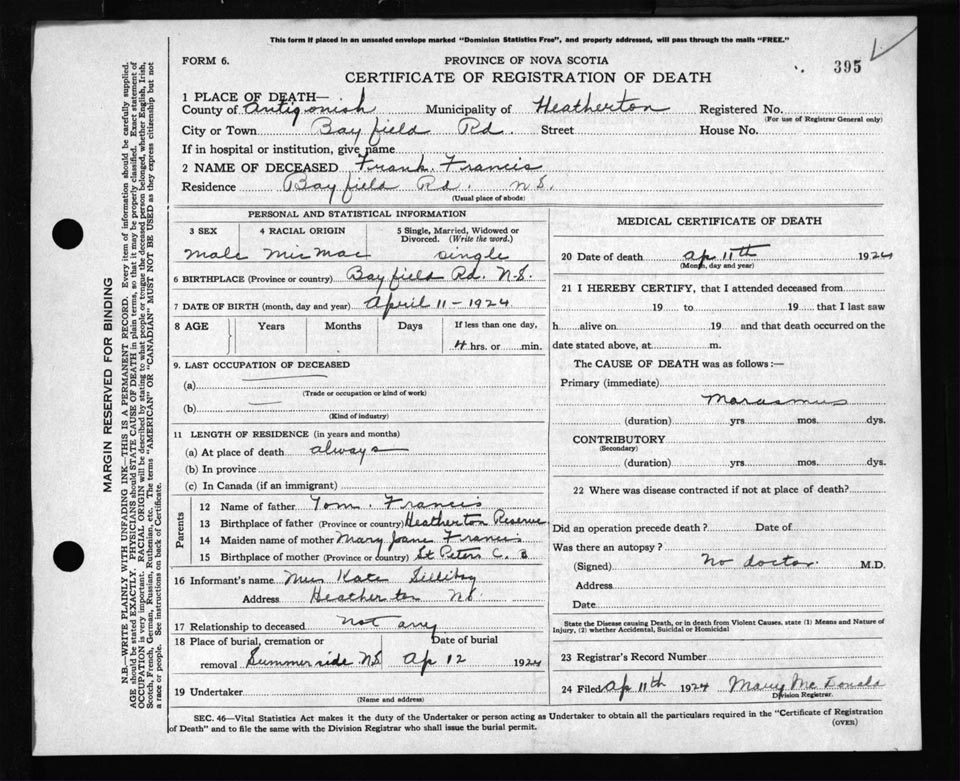 This form if placed in an unsealed envelope marked "Dominion Statistics Free", and properly addressed, will pass through the mails "FREE."
FORM 6.
PROVINCE OF NOVA SCOTIA
395
CERTIFICATE OF REGISTRATION OF DEATH
1 PLACE OF DEATH—
County of Antigonish Municipality of Heatherton Registered No.
(For use of Registrar General only)
City or Town Bayfield Rd. Street House No.
If in hospital or institution, give name
2 NAME OF DECEASED Frank. Francis
Residence Bayfield Rd. N.S.
(Usual place of abode)
PERSONAL AND STATISTICAL INFORMATION
3 SEX 4 RACIAL ORIGIN 5 Single, Married, Widowed or Divorced. (Write the word.)
male Mic Mac single
6 BIRTHPLACE (Province or country) Bayfield Rd. N.S.
7 DATE OF BIRTH (month, day and year) April 11 - 1924
8 AGE Years Months Days If less than one day,
4 hrs. or min.
9. LAST OCCUPATION OF DECEASED
(a) —
(Trade or occupation or kind of work)
(b) —
(Kind of industry)
11 LENGTH OF RESIDENCE (in years and months)
(a) At place of death always
(b) In province
(c) In Canada (if an immigrant)
Parents
12 Name of father Tom. Francis
13 Birthplace of father (Province or country) Heatherton Reserve
14 Maiden name of mother Mary Jane Francis
15 Birthplace of mother (Province or country) St Peters C. B
16 Informant's name Mrs Kate
Address Heatherton N.S.
17 Relationship to deceased not any
18 Place of burial, cremation or Date of burial
removal Summerside N.S Ap 12 1924
19 Undertaker
(Name and address)
MEDICAL CERTIFICATE OF DEATH
20 Date of death Ap 11th 1924
(Month, day and year)
21 I HEREBY CERTIFY, that I attended deceased from
19 to 19 that I last saw
h alive on 19 and that death occurred on the
date stated above, at m.
The CAUSE OF DEATH was as follows:—
Primary (immediate)
Marasmus
(duration) yrs mos. dys.
CONTRIBUTORY
(Secondary)
(duration) yrs mos. dys.
22 Where was disease contracted if not at place of death?
Did an operation precede death? Date of
Was there an autopsy?
(Signed) No doctor. M.D.
Address
Date
State the Disease causing Death, or in death from Violent Causes, state (1) Means and Nature of
Injury, (2) whether Accidental, Suicidal or Homicidal
23 Registrar's Record Number
24 Filed Ap 11th 1924 Mary McDonald
Division Registrar.
SEC. 46—Vital Statistics Act makes it the duty of the Undertaker or person acting as Undertaker to obtain all the particulars required in the "Certificate of Registration
of Death" and to file the same with the Division Registrar who shall issue the burial permit.
(OVER)
MARGIN RESERVED FOR BINDING
N.B.—WRITE PLAINLY WITH UNFADING INK—THIS IS A PERMANENT RECORD. Every item of information should be carefully supplied.
AGE should be stated EXACTLY. PHYSICIANS should STATE CAUSE OF DEATH in plain terms, so that it may be properly classified. Exact statement of
OCCUPATION is very important. RACIAL ORIGIN will be described by stating to what people or tongue the deceased person belonged, whether English, Irish,
Scotch, French, German, Russian, Ruthenian, etc. The terms "AMERICAN" OR "CANADIAN" MUST NOT BE USED as they express citizenship but not
a race or people. See instructions on back of Certificate.